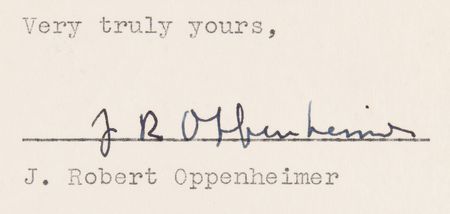 Very truly yours,
J R Oppenheimer
J. Robert Oppenheimer